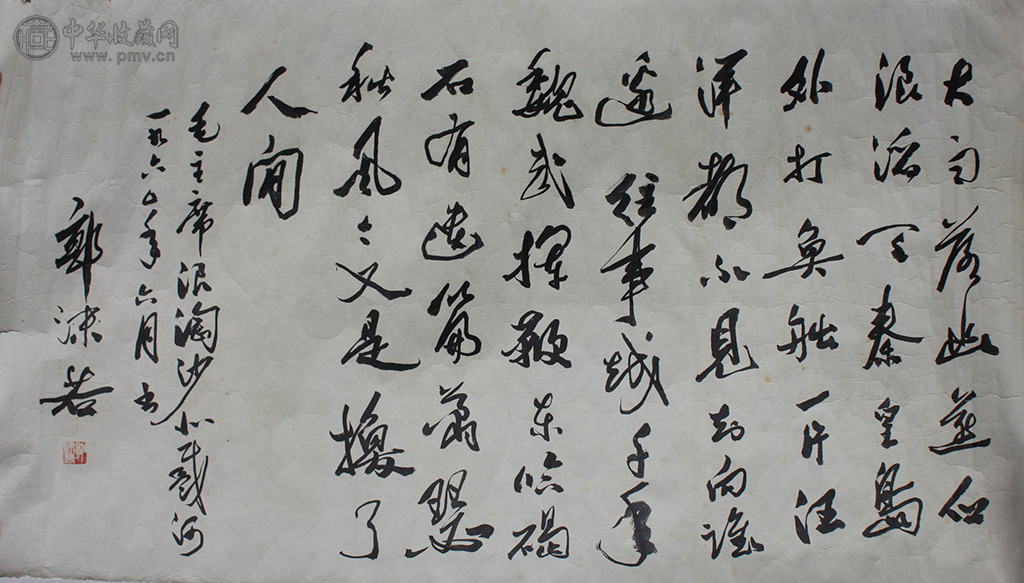 大雨落幽燕白
浪滔天秦皇島
外打魚船一片汪
洋都不見知向誰
邊往事越千年
魏武揮鞭東临碣
石有遺篇蕭瑟
秋風今又是換了
人间
毛主席浪淘沙北戴河
一九六五年六月书
郭沫若
中华收藏网
www.pmv.cn